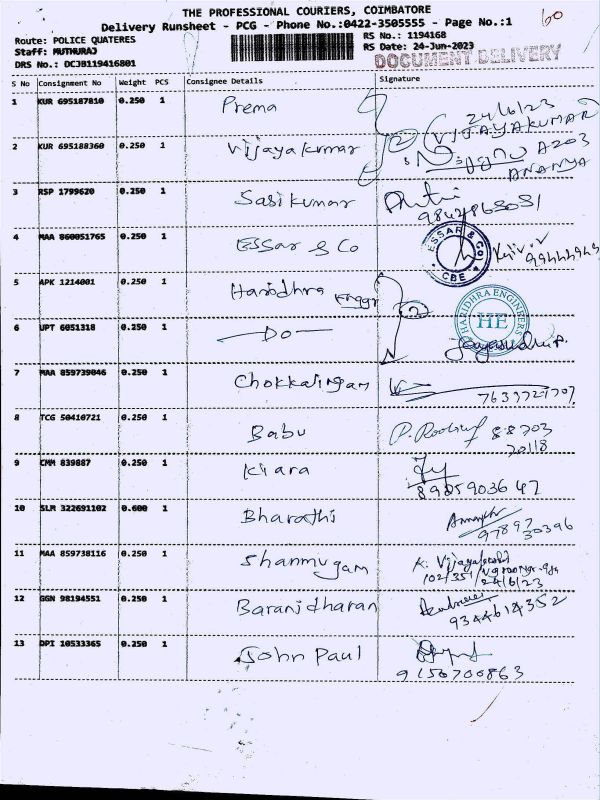 THE PROFESSIONAL COURIERS, COIMBATORE
60
Delivery Runsheet - PCG - Phone No.:0422-3505555 - Page No.:1
Route: POLICE QUATERES
RS No.: 1194168
Staff: MUTHURAJ
RS Date: 24-Jun-2023
DRS No.: DCJB119416801
DOCUMENT DELIVERY
S No Consignment No Weight PCS Consignee Details Signature
1 KUR 695187810 0.250 1 Prema 24/6/23
VIJAYAKUMAR
2 KUR 695188360 0.250 1 Vijayakumar 2 A203
ANANYA
3 RSP 1799620 0.250 1 Sasikumar
9842863031
4 MAA 860051765 0.250 1 ESSar & Co ESSAR & CO CBE
5 APK 1214001 0.250 1 Haridhra Enggr 2 HARIDHRA ENGINEERS HE
6 UPT 6051318 0.250 1 —Do—
7 MAA 859739046 0.250 1 Chokkalingam
8 TCG 50410721 0.250 1 Babu 88703
20118
9 CMM 839887 0.250 1 Kiara
8905903647
10 SLM 322691102 0.600 1 Bharathi
97897 30396
11 MAA 859738116 0.250 1 Shanmugam
24/6/23
12 GGN 98194551 0.250 1 Baranidharan
9344614352
13 DPI 10533365 0.250 1 John Paul
9150700863